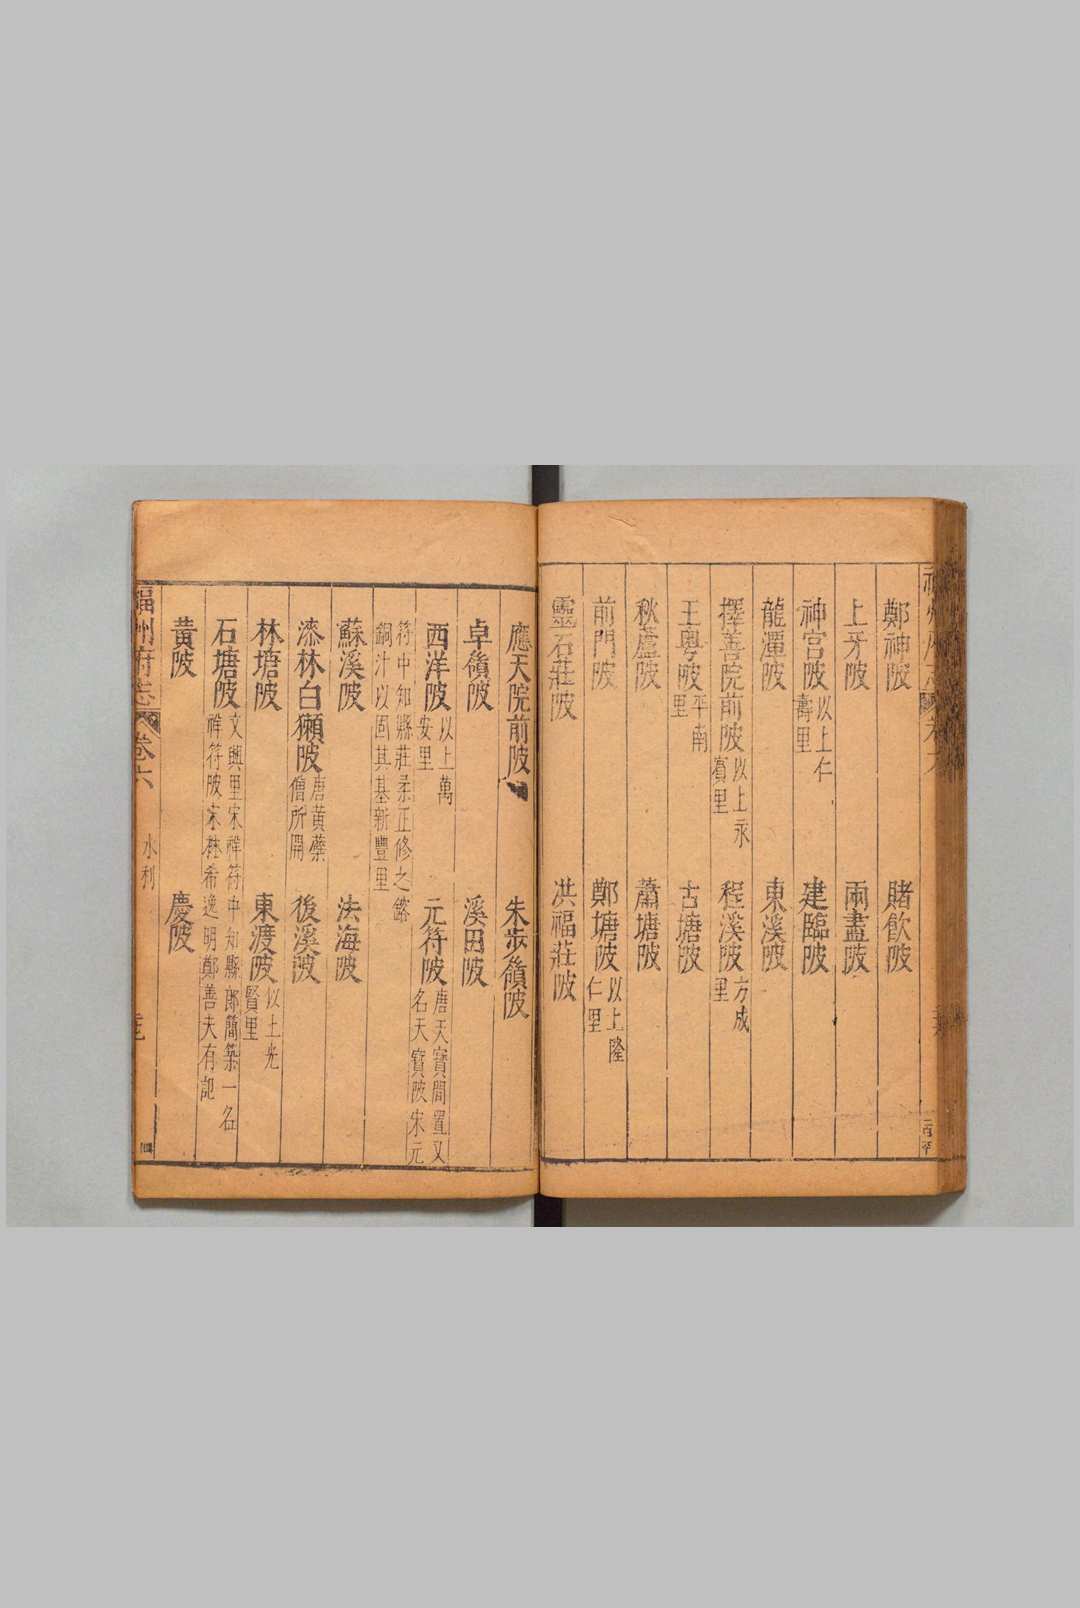 鄭神陂 賭飲陂
上牙陂 兩畫陂
神宮陂 以上仁壽里 建臨陂
龍潭陂 東溪陂
擇善院前陂 以上永賓里 程溪陂 方成里
王粵陂 平南里 古塘陂
秋蘆陂 蕭塘陂
前門陂 鄭塘陂 以上隆仁里
靈石莊陂 洪福莊陂
應天院前陂 朱步嶺陂
卓嶺陂 溪田陂
西洋陂 以上萬安里 元符陂 唐天寶間置又名天寶陂宋元
符中知縣莊柔正修之鎔銅汁以固其基新豐里
蘇溪陂 法海陂
漆林白獺陂 唐黃蘗僧所開 後溪陂
林塘陂 東渡陂 以上光賢里
石塘陂 文興里宋祥符中知縣郎簡築一名祥符陂宋林希逸明鄭善夫有記
黃陂 慶陂
福州府志 卷六 水利